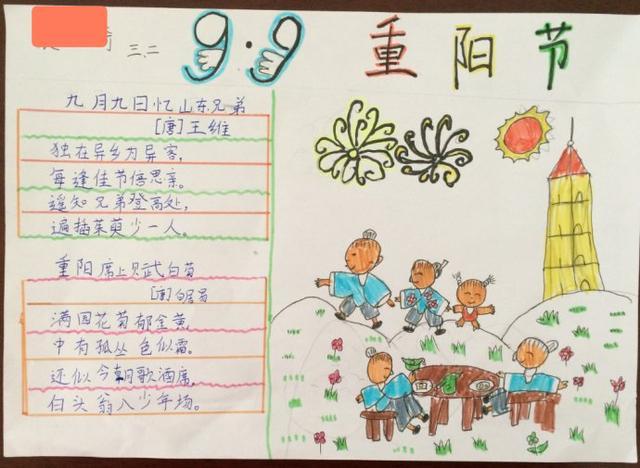 三.二
9·9
重阳节
九月九日忆山东兄弟
[唐]王维
独在异乡为异客,
每逢佳节倍思亲。
遥知兄弟登高处,
遍插茱萸少一人。
重阳席上只武白菊
[唐]白居易
满园花菊郁金黄,
中有孤丛色似霜。
还似今朝歌酒席,
白头翁入少年场。